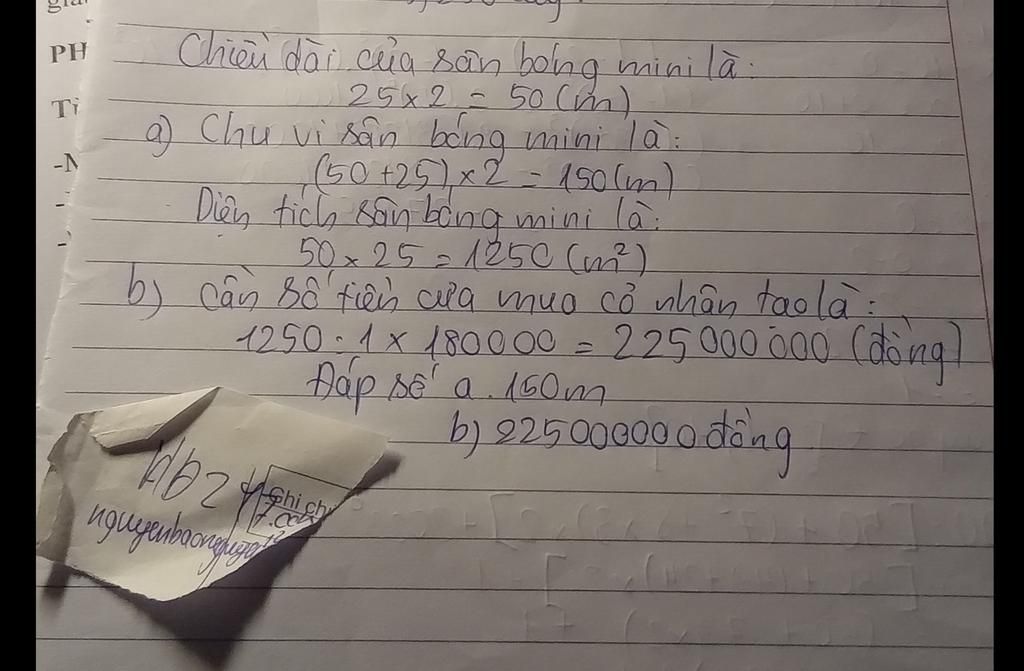 PH
Chiều dài của sân bóng mini là:
25 x 2 = 50 (m)
a) Chu vi sân bóng mini là:
(50 + 25) x 2 = 150 (m)
Diện tích sân bóng mini là:
50 x 25 = 1250 (m²)
b) Cần số tiền của mua cỏ nhân tạo là:
1250 : 1 x 180000 = 225000000 (đồng)
Đáp số a. 150m
b) 225000000 đồng